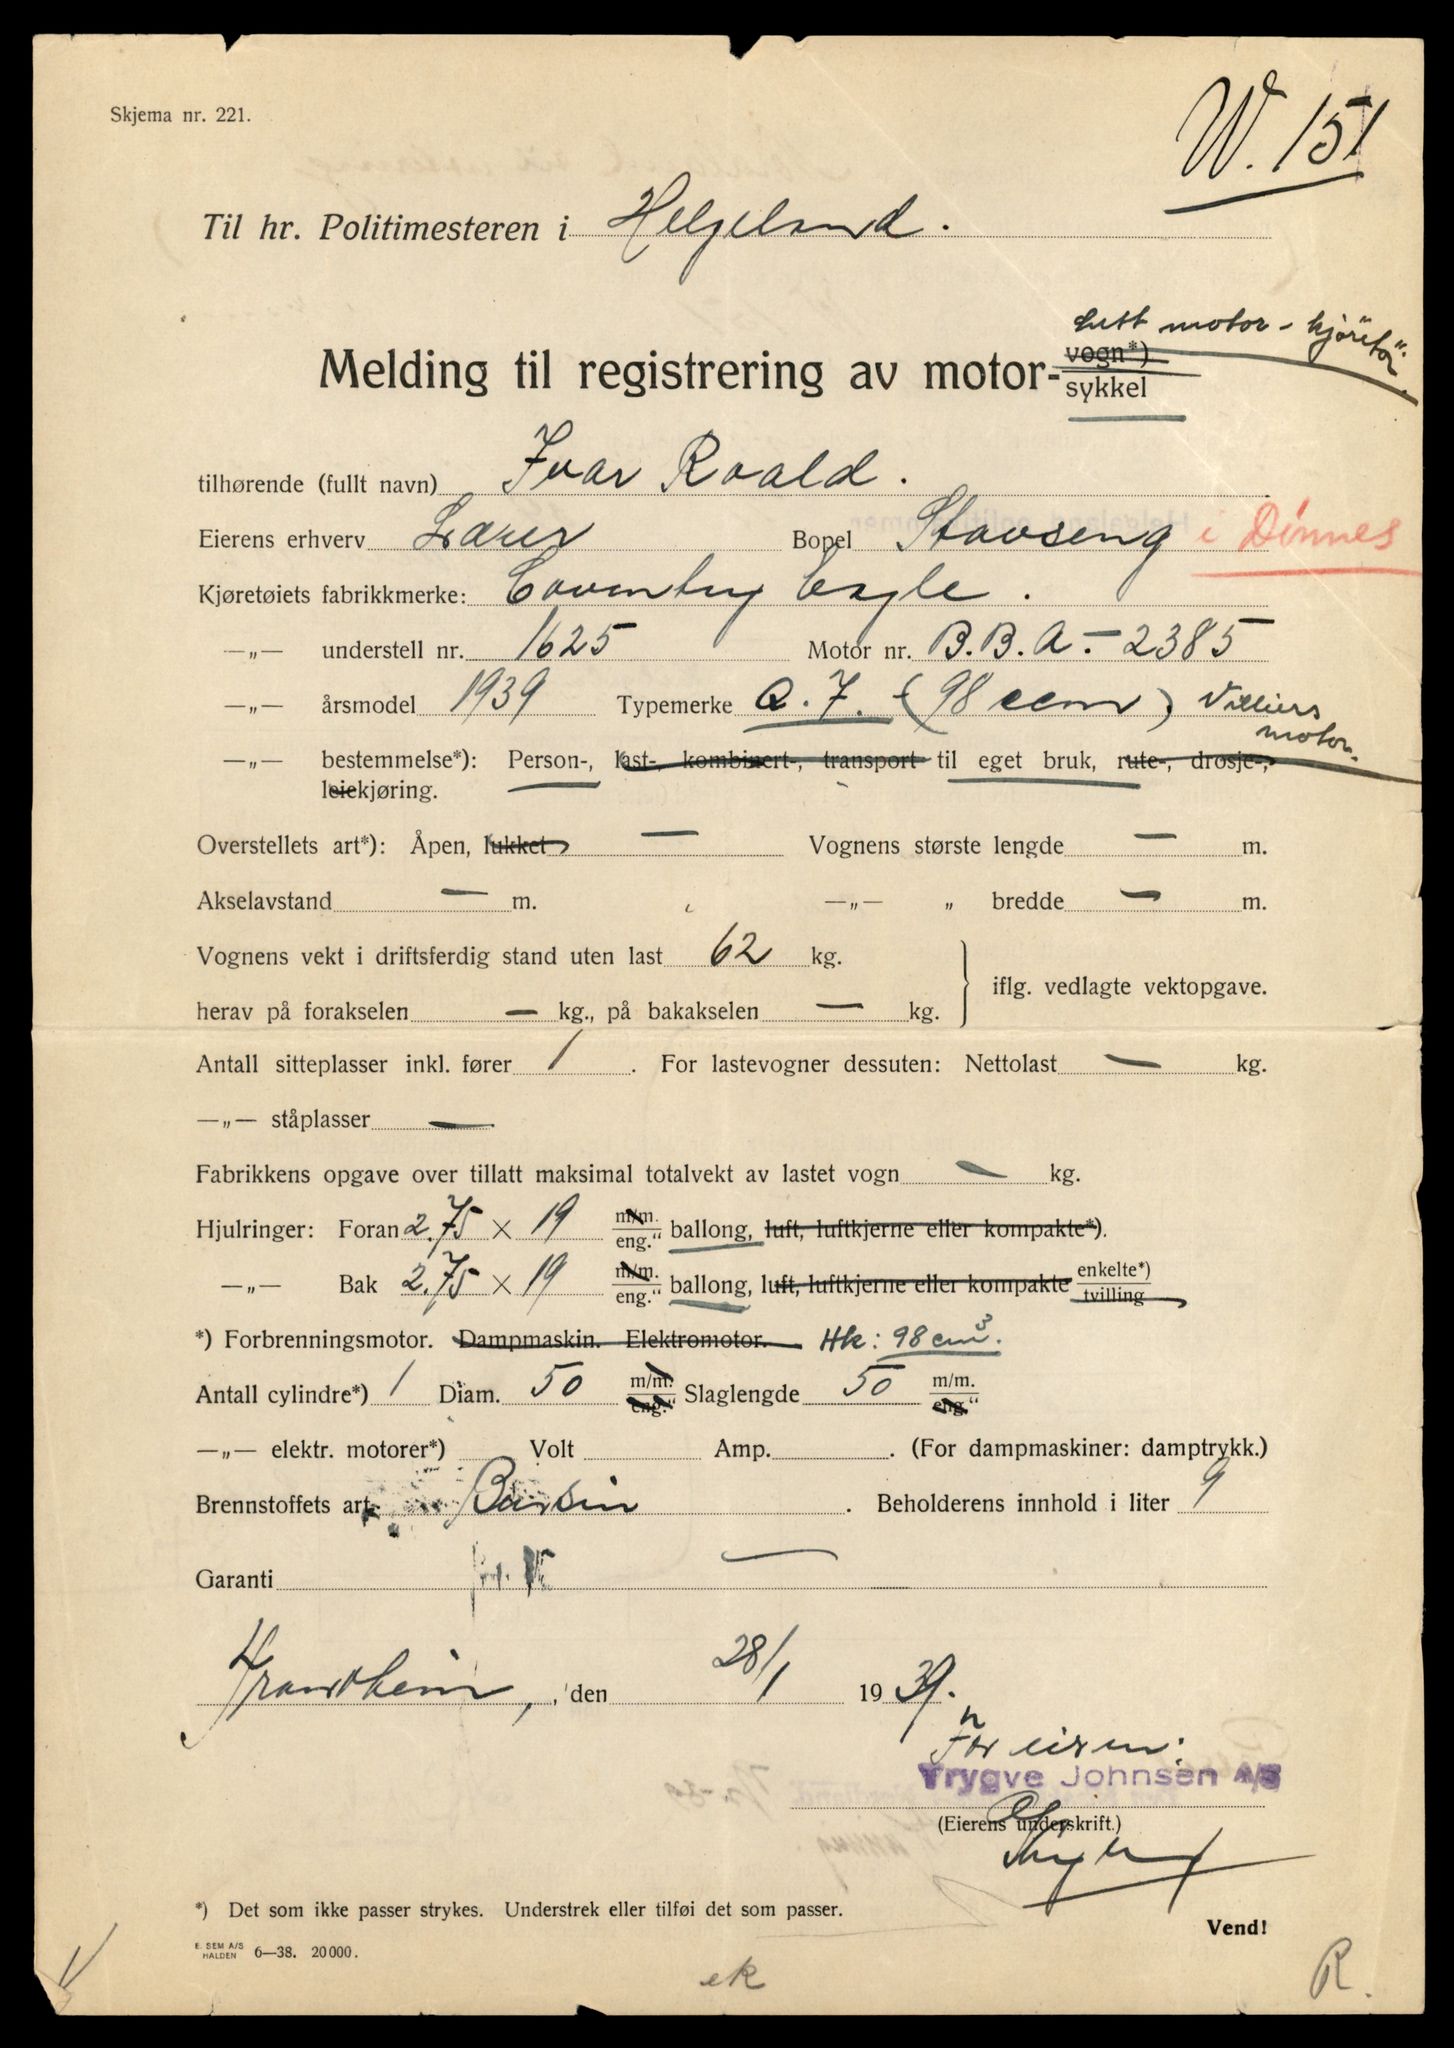 Skjema nr. 221.
W. 151
Til hr. Politimesteren i Helgeland.
Lett motor-kjöretöi.
Melding til registrering av motor-vogn*) sykkel
tilhørende (fullt navn) Ivar Roald.
Eierens erhverv Lærer Bopel Stavseng i Dönnes
Kjøretøiets fabrikkmerke: Coventry Eagle.
—„— understell nr. 1625 Motor nr. B.B.A.-2385
—„— årsmodel 1939 Typemerke Q.7. (98 ccm) Villiers motor.
—„— bestemmelse*): Person-, last-, kombinert-, transport til eget bruk, rute-, drosje-,
leiekjøring.
Overstellets art*): Åpen, lukket — Vognens største lengde — m.
Akselavstand — m. —„— „ bredde — m.
Vognens vekt i driftsferdig stand uten last 62 kg.
iflg. vedlagte vektopgave.
herav på forakselen — kg., på bakakselen — kg.
Antall sitteplasser inkl. fører 1. For lastevogner dessuten: Nettolast — kg.
—„— ståplasser —
Fabrikkens opgave over tillatt maksimal totalvekt av lastet vogn — kg.
Hjulringer: Foran 2.75 × 19 m/m. eng.“ ballong, luft, luftkjerne eller kompakte*).
—„— Bak 2.75 × 19 m/m. eng.“ ballong, luft, luftkjerne eller kompakte enkelte*) tvilling
*) Forbrenningsmotor. Dampmaskin. Elektromotor. Hk: 98 cm³.
Antall cylindre*) 1 Diam. 50 m/m. eng.“ Slaglengde 50 m/m. eng.“
—„— elektr. motorer*) Volt Amp. . (For dampmaskiner: damptrykk.)
Brennstoffets art Bensin. Beholderens innhold i liter 9
Garanti —
Trondheim, den 28/1 1939.
För eieren:
Trygve Johnsen A/S
(Eierens underskrift.)
*) Det som ikke passer strykes. Understrek eller tilføi det som passer.
Vend!
E. SEM A/S HALDEN 6—38. 20000.
ek
R.